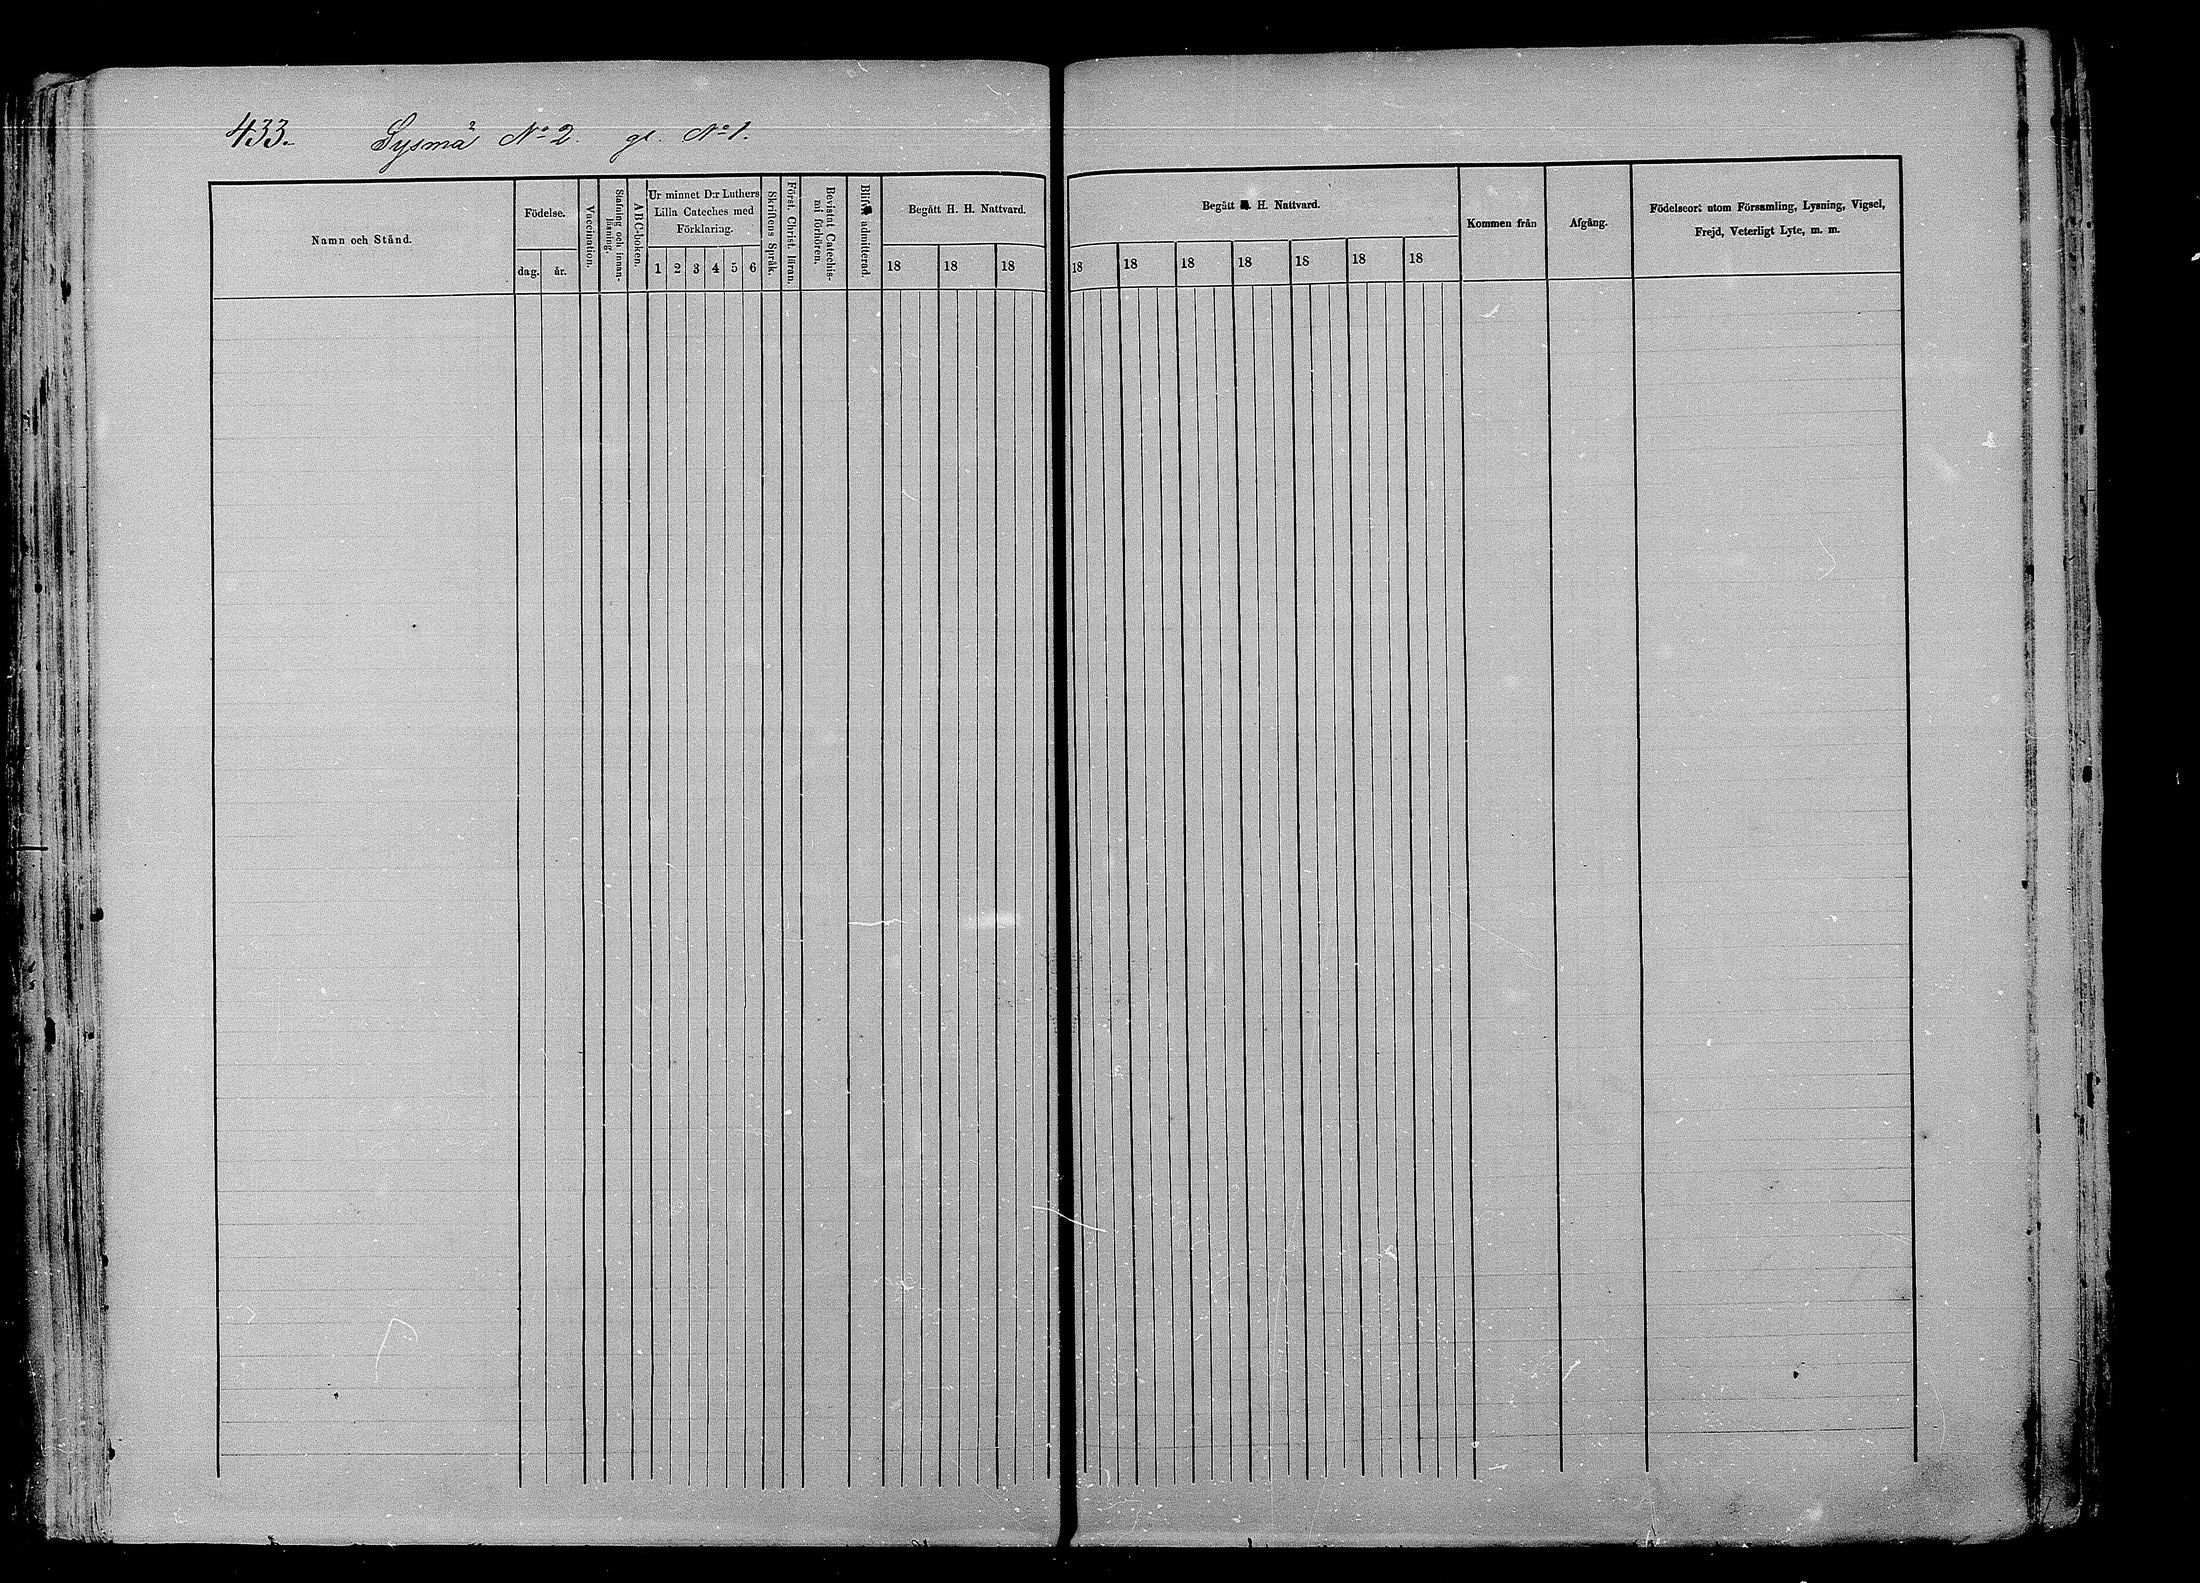 433. Sysmä No 2. gl. No 1.
Namn och Stånd.
Födelse.
dag. år.
Vaccination.
Stafning och innan-
läsning.
ABC-boken.
Ur minnet D:r Luthers
Lilla Cateches med
Förklaring.
1 2 3 4 5 6
Skriftens Språk.
Först. Christ. läran.
Bevistatt Catechis-
mi förhören.
admitterad.
Begått H. H. Nattvard.
18 18 18
Begått H. Nattvard.
18 18 18 18 18 18 18
Kommen från
Afgång.
Födelseort utom Församling, Lysning, Vigsel,
Frejd, Veterligt Lyte, m. m.